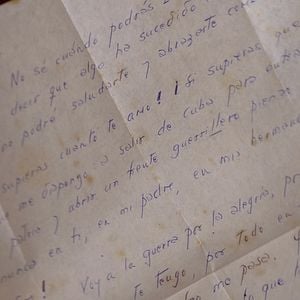 No sé cuándo podrás
decir que algo ha sucedido
no podré saludarte y abrazarte como
supieras cuanto te amo! ¡Si supieras que
me dispongo a salir de Cuba para
patria y abrir un frente guerrillero pienso
nunca en ti, en mi padre, en mis hermanos
! Voy a la guerra por la alegría, por
te tengo, por todo en
me pasa. Y
que